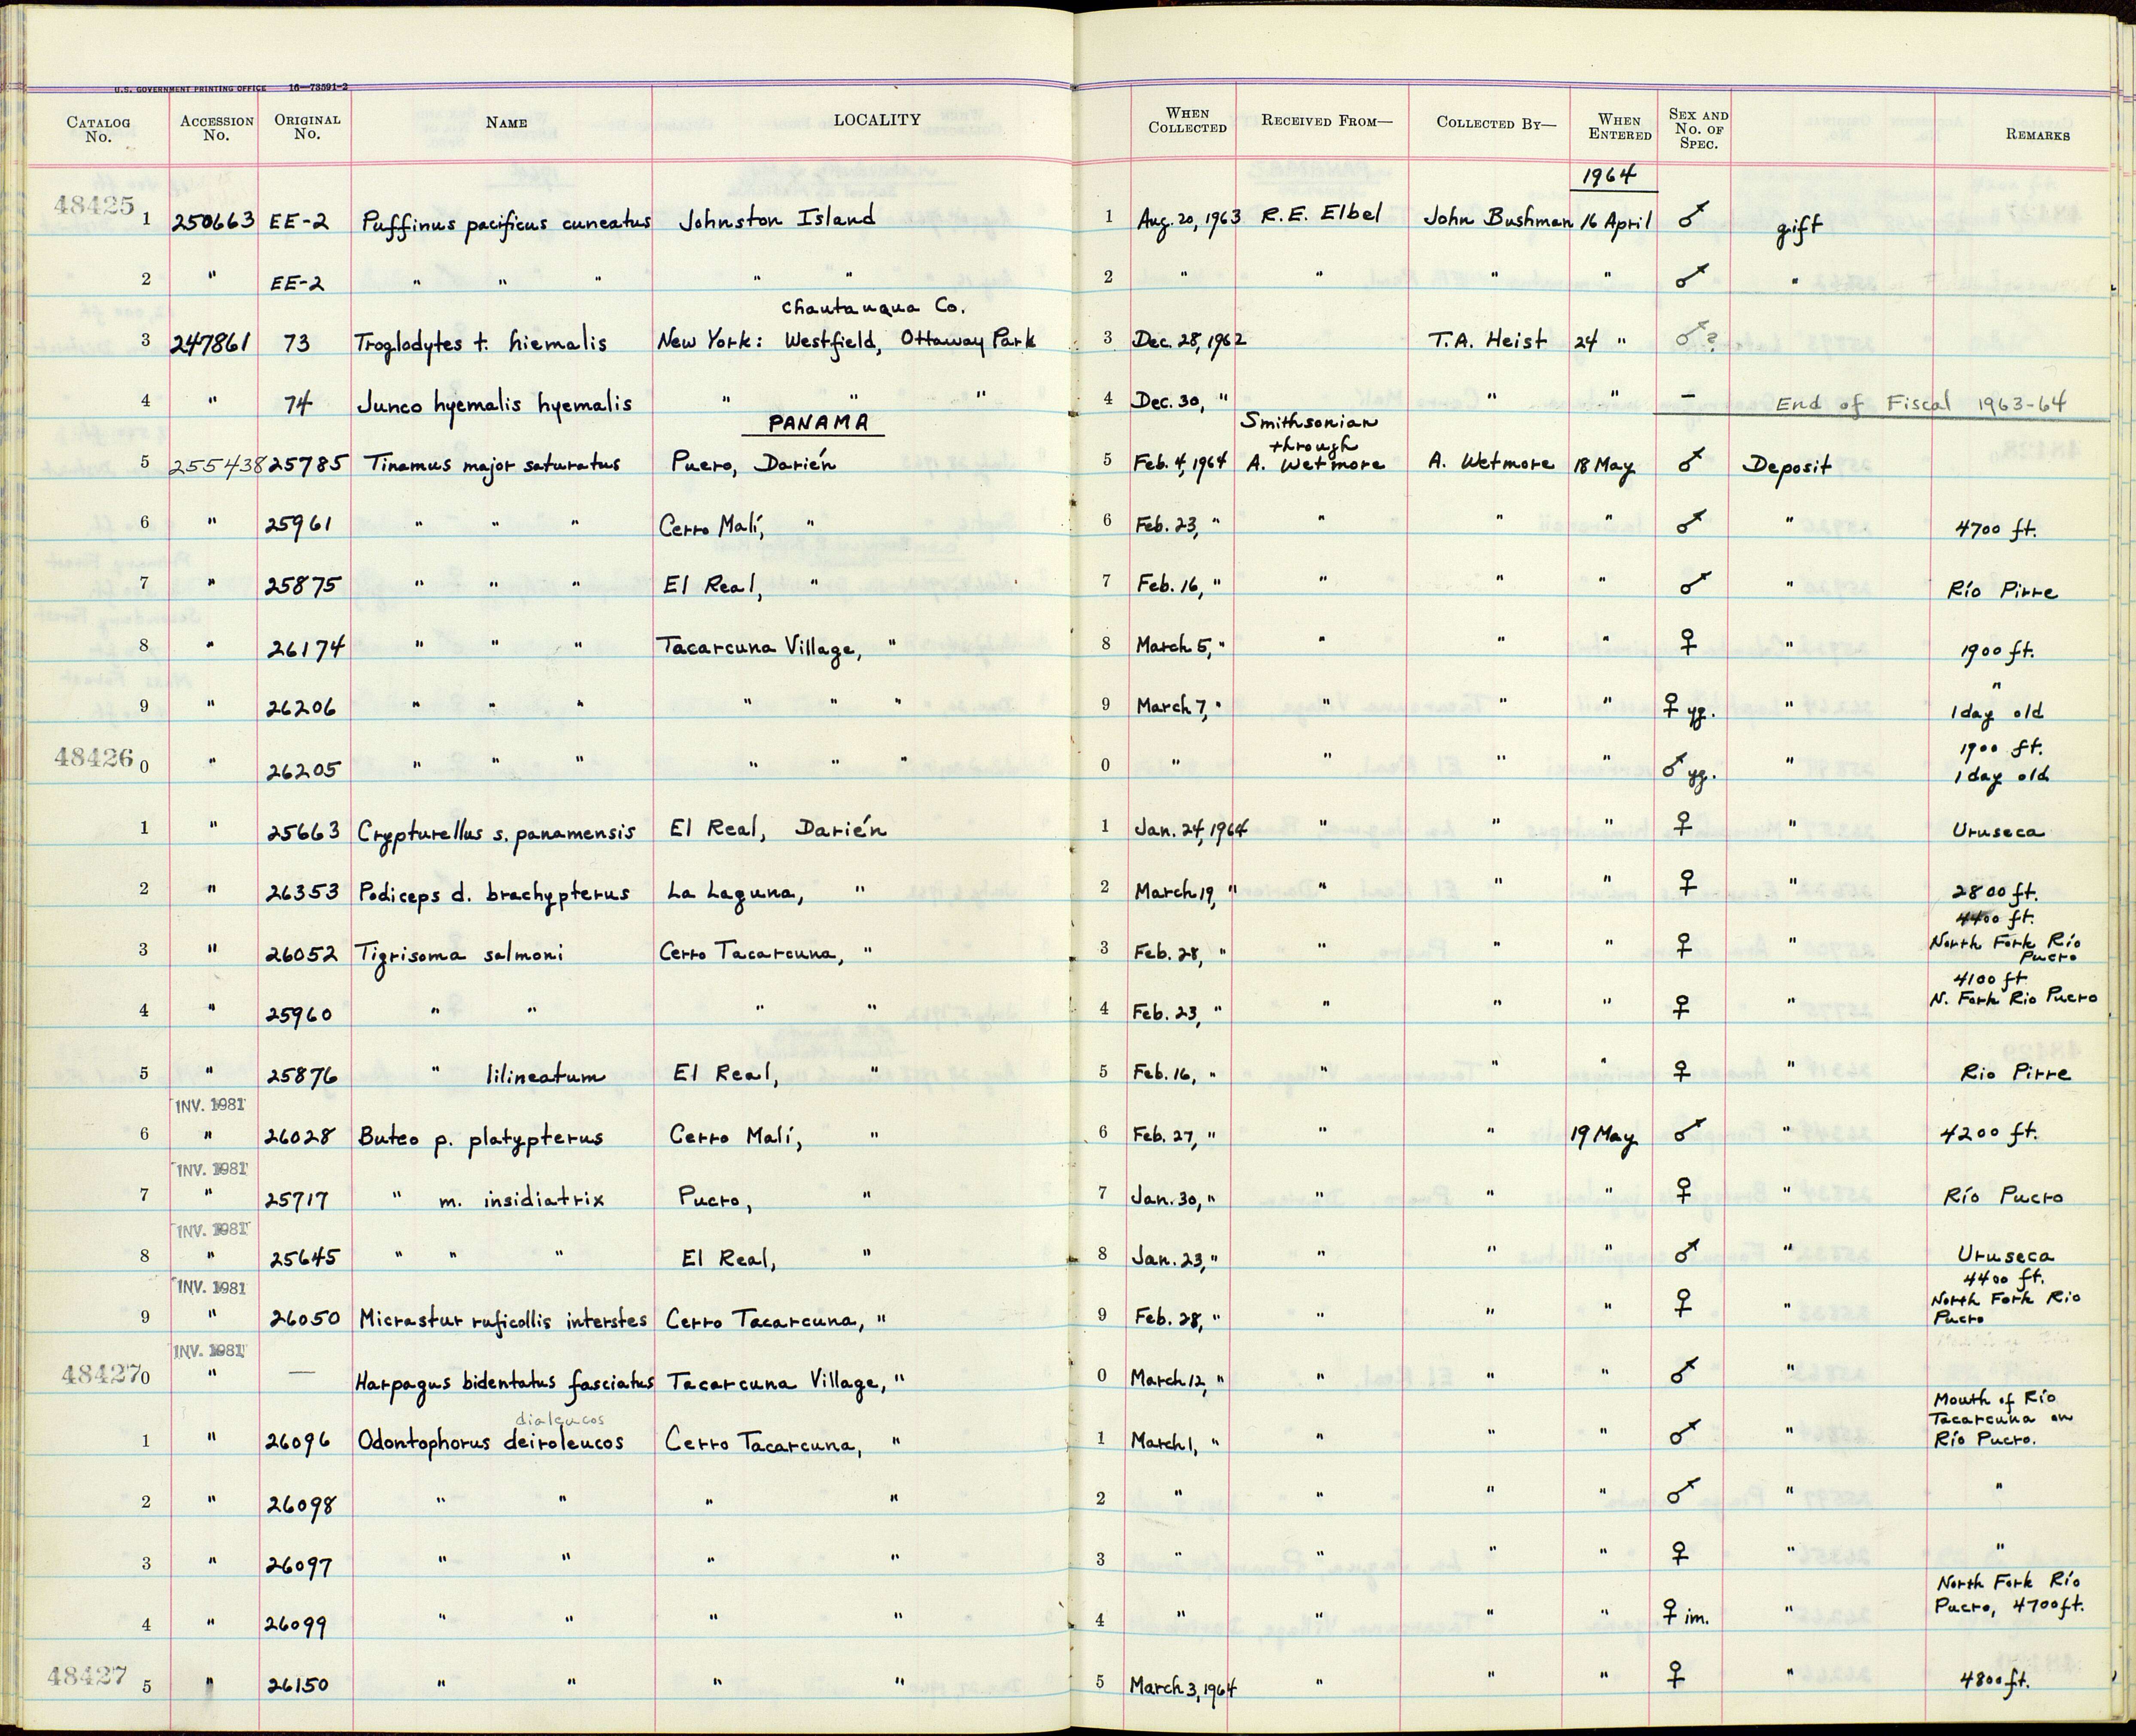 U.S. GOVERNMENT PRINTING OFFICE 16—73591-2
CATALOG No. ACCESSION No. ORIGINAL No. NAME LOCALITY WHEN COLLECTED RECEIVED FROM— COLLECTED BY— WHEN ENTERED SEX AND No. OF SPEC. REMARKS
1964
48425 1 250663 EE-2 Puffinus pacificus cuneatus Johnston Island 1 Aug. 20, 1963 R.E. Elbel John Bushman 16 April ♂ gift
2 " EE-2 " " " " " 2 " " " " ♂ "
Chautauqua Co.
3 247861 73 Troglodytes t. hiemalis New York: Westfield, Ottaway Park 3 Dec. 28, 1962 T.A. Heist 24 " ♂?
4 " 74 Junco hyemalis hyemalis " " " 4 Dec. 30, " " " – End of Fiscal 1963-64
PANAMA Smithsonian through
5 255438 25785 Tinamus major saturatus Pucro, Darién 5 Feb. 4, 1964 A. Wetmore A. Wetmore 18 May ♂ Deposit
6 " 25961 " " " Cerro Malí, " 6 Feb. 23, " " " " ♂ " 4700 ft.
7 " 25875 " " " El Real, " 7 Feb. 16, " " " " ♂ " Río Pirre
8 " 26174 " " " Tacarcuna Village, " 8 March 5, " " " " ♀ " 1900 ft.
9 " 26206 " " " " " " 9 March 7, " " " " ♀ yg. " " 1 day old
48426 0 " 26205 " " " " " " 0 " " " " ♂ yg. " 1900 ft. 1 day old
1 " 25663 Crypturellus s. panamensis El Real, Darién 1 Jan. 24, 1964 " " " ♀ " Uruseca
2 " 26353 Podiceps d. brachypterus La Laguna, " 2 March 19, " " " " ♀ " 2800 ft.
3 " 26052 Tigrisoma salmoni Cerro Tacarcuna, " 3 Feb. 28, " " " " ♀ " 4400 ft. North Fork Río Pucro
4 " 25960 " " " " 4 Feb. 23, " " " " ♀ " 4100 ft N. Fork Rio Pucro
5 " 25876 " lilineatum El Real, " 5 Feb. 16, " " " " ♀ " Rio Pirre
INV. 1981
6 " 26028 Buteo p. platypterus Cerro Malí, " 6 Feb. 27, " " " 19 May ♂ " 4200 ft.
INV. 1981
7 " 25717 " m. insidiatrix Pucro, " 7 Jan. 30, " " " " ♀ " Río Pucro
INV. 1981
8 " 25645 " " " El Real, " 8 Jan. 23, " " " " ♂ " Uruseca
INV. 1981
9 " 26050 Micrastur ruficollis interstes Cerro Tacarcuna, " 9 Feb. 28, " " " " ♀ " 4400 ft. North Fork Rio Pucro
INV. 1981
48427 0 " — Harpagus bidentatus fasciatus Tacarcuna Village, " 0 March 12, " " " " ♂ "
dialeucos
1 " 26096 Odontophorus deiroleucos Cerro Tacarcuna, " 1 March 1, " " " " ♂ " Mouth of Río Tacarcuna on Río Pucro.
2 " 26098 " " " " 2 " " " " ♂ " "
3 " 26097 " " " " 3 " " " " ♀ " "
4 " 26099 " " " " 4 " " " " ♀ im. " North Fork Río Pucro, 4700 ft.
48427 5 " 26150 " " " " 5 March 3, 1964 " " " ♀ " 4800 ft.